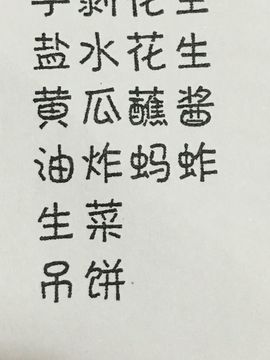 手剥花生
盐水花生
黄瓜蘸酱
油炸蚂蚱
生菜
吊饼